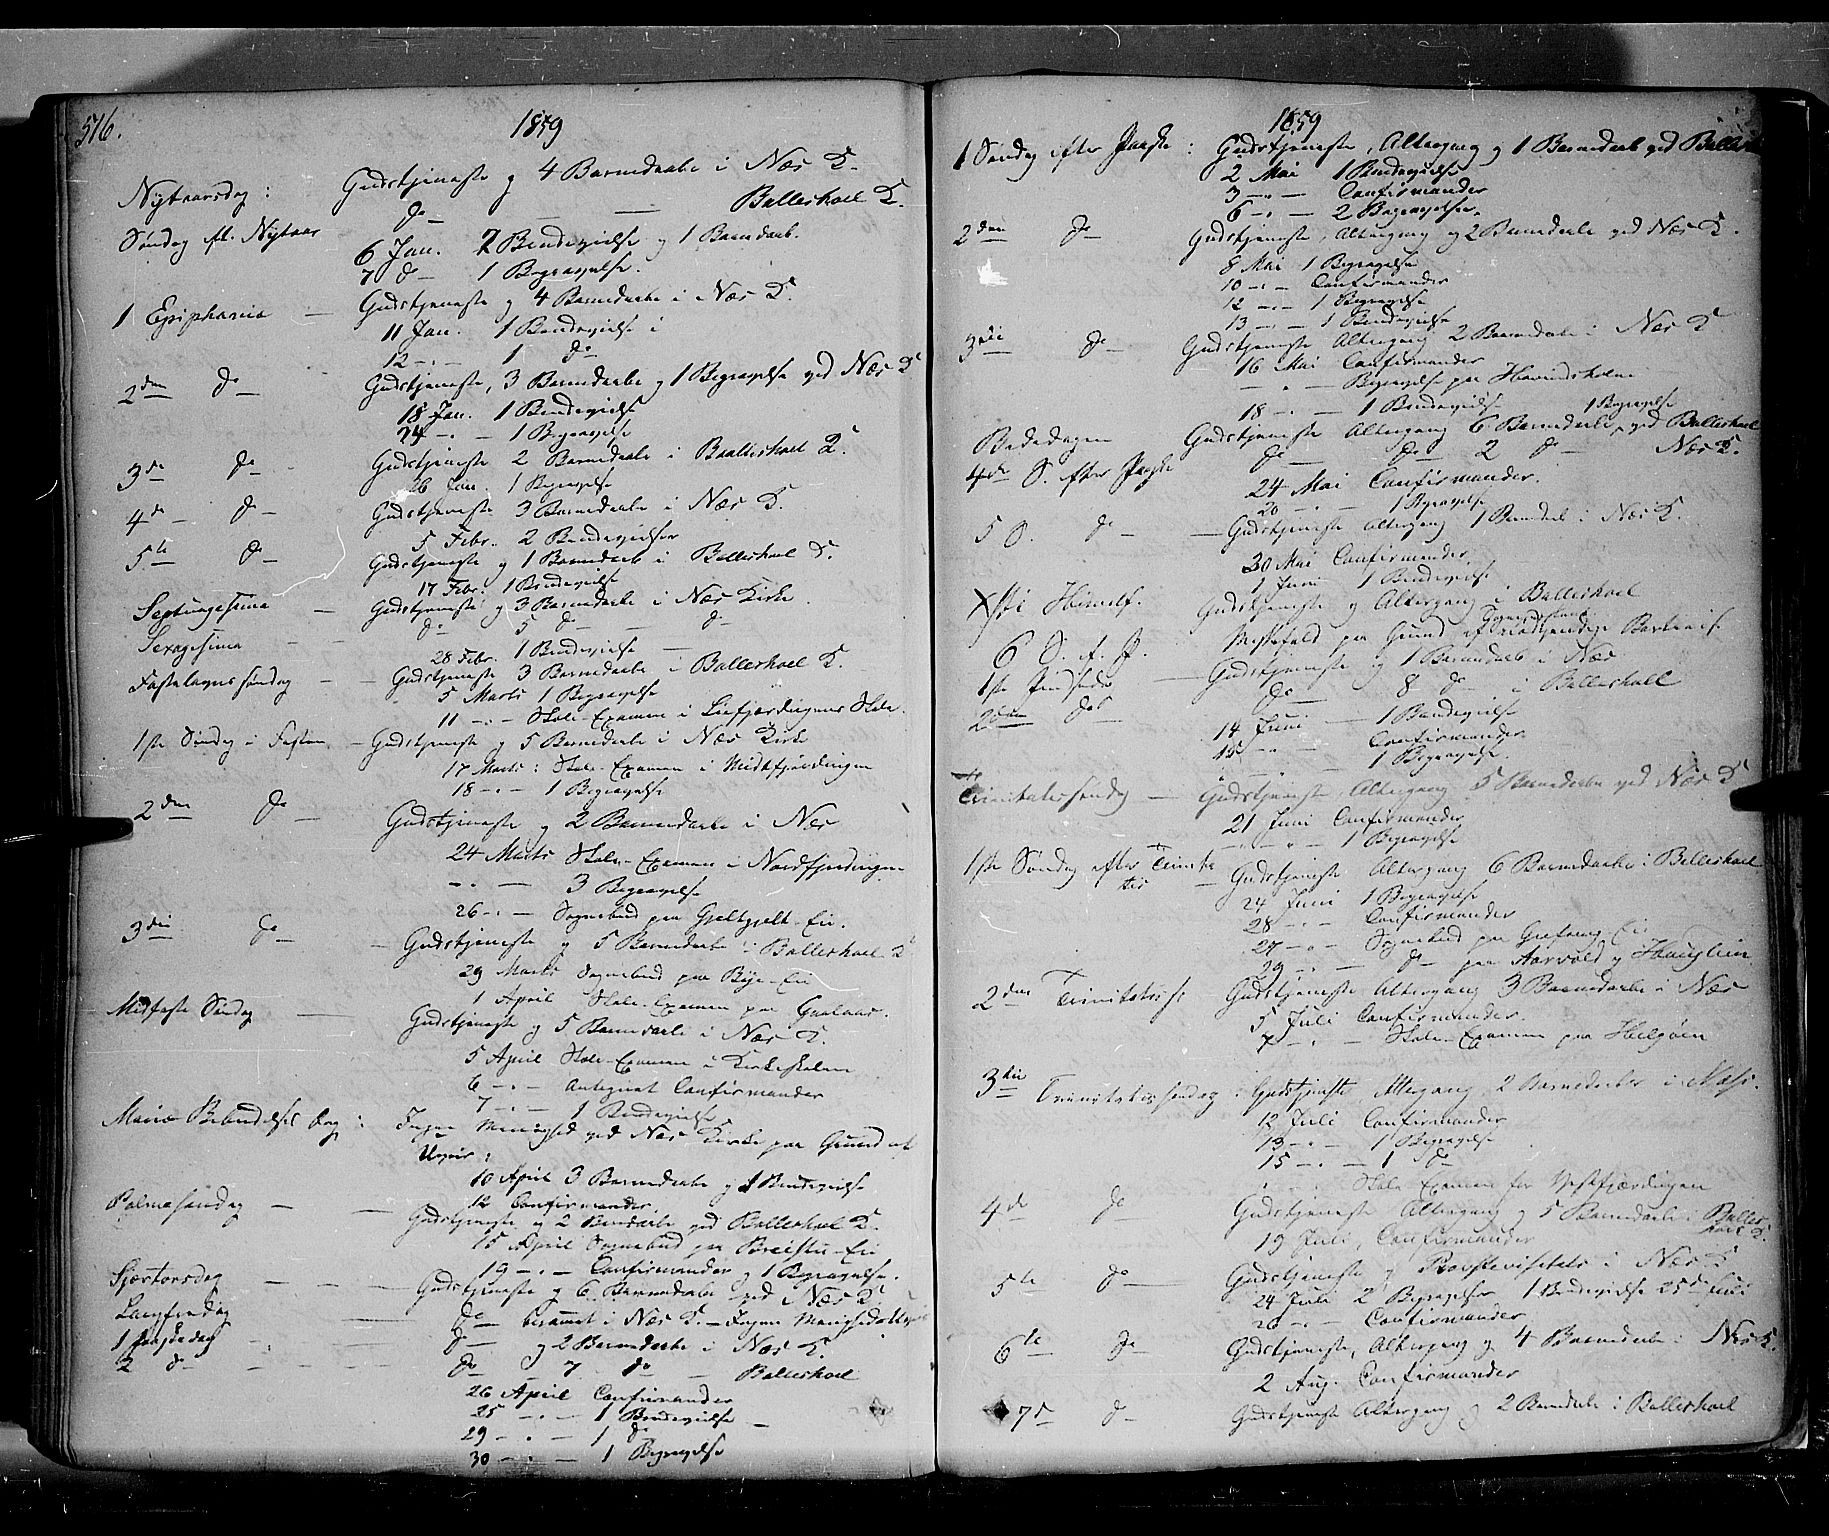 516.
1859
Nytaarsdag : Gudstjeneste og 4 Barnedaabe i Næs K.
Søndag eft. Nytaar do — — Balleshoel K.
6 Jan. 2 Brudevielse og 1 Barnedaab.
7 do — 1 Begravelse.
1 Epiphania — Gudstjeneste og 4 Barnedaabe i Næs K.
11 Jan. 1 Brudevielse i
12 -"- — 1 do
2den do — Gudstjeneste, 3 Barnedaabe og 1 Begravelse ved Næs K
18 Jan. 1 Brudevielse
24 -"- — 1 Begravelse
3de do — Gudstjeneste 2 Barnedaabe i Balleshoel K.
26 Jan. 1 Begravelse
4de — do — Gudstjeneste 3 Barnedaabe i Næs K.
5 Febr. 2 Brudevielser
5te do — Gudstjeneste og 1 Barnedaab i Balleshoel K.
17 Febr. 1 Brudevielse
Septuagesima — Gudstjeneste og 3 Barnedaabe i Næs Kirke.
Sexagesima — — do — 5 do — do —
28 Febr. 1 Brudevielse —
Fastelavns søndag — — Gudstjeneste 3 Barnedaabe i Balleshoel K.
5 Marts 1 Begravelse
11 -"- — Skole-Examen i Liefjerdingens Skole.
1ste Søndag i Fasten — Gudstjeneste og 5 Barnedaabe i Næs Kirke
17 Marts : Skole-Examen i Midtfjerdingen
18 -"- — 1 Begravelse
2den do Gudstjeneste og 2 Barnedaabe i Næs
24 Marts Skole-Examen i Nordfjerdingen
-"- — 3 Begravelse
26 -"- — Sognebud paa -Eie.
3die do — — Gudstjeneste og 5 Barnedaabe i Balleshoel K
29 Marts Sognebud paa Bye-Eie
1 April Skole-Examen paa
Midfaste Søndag — Gudstjeneste og 5 Barnedaabe i Næs K.
5 April Skole-Examen i Kirkeskolen
6 -"- — Antegnet Confirmander
7 -"- — 1 Brudevielse
Maria Bebudelses Dag : Ingen Menighed ved Næs Kirke paa Grund af
Uveir :
10 April 3 Barnedaabe og 1 Brudevielse
12 Confirmander.
Palmesøndag — — Gudstjeneste og 2 Barnedaabe ved Balleshoel K.
15 April Sognebud paa -Eie
19 -"- — Confirmander og 1 Begravelse.
Sjertorsdag — — — Gudstjeneste og 6 Barnedaabe ved i Næs K
Langfredag — do — berammet i Næs K. — Ingen Menighed
1 Paaskedag — — do — og 2 Barnedaabe i Næs K.
2 do — — — do — 7 do — Balleshoel
26 April Confirmander
25 -"- — 1 Brudevielse —
29 -"- — 1 do —
30 -"- — 1 Begravelse
1859
1 Søndag efter Paaske : Gudstjeneste, Altergang og 1 Barnedaab ved Balles
2 Mai 1 Brudevielse
3 -"- — Confirmander
6 -"- — 2 Begravelser.
2den do Gudstjeneste, Altergang og 2 Barnedaabe ved Næs K.
8 Mai 1 Begravelse
10 -"- Confirmander
12 -"- 1 Begravelse
13 -"- 1 Brudevielse
3die do — Gudstjeneste Altergang 2 Barnedaabe i Næs K
16 Mai Confirmander
— " — Begravelse paa Hovindsholm
18 -"- — 1 Brudevielse 1 Begravelse
Bededagen Gudstjeneste Altergang 6 Barnedaabe ved Balleshoel
4de S. efter Paaske do — do — 2 do — Næs K.
24 Mai Confirmander.
20 -"- — 1 Begravelse
5 S. do — — Gudstjeneste Altergang 1 Barnedaab i Næs K.
30 Mai Confirmander
1 Juni 1 Brudevielse
Xsti Himelf. Gudstjeneste og Altergang i Balleshoel
6 S. e. P. Messefald paa Grund af nødvendige
1ste Pindsedag — Gudstjeneste og 1 Barnedaab i Næs
2den do do — 8 do — i Balleshoel
14 Juni — 1 Brudevielse
15 -"- Confirmander
" — " — 1 Begravelse.
Trinitatis søndag — Gudstjeneste Altergang 5 Barnedaabe ved Næs K
21 Juni Confirmander
-"-"- — 1 Begravelse
1ste Søndag efter Trinita
tis — Gudstjeneste Altergang 6 Barnedaabe i Balleshoel
24 Juni 1 Begravelse
28 -"- Confirmander
27 -"- Sognebud paa Eie
29 -"- — do — paa Aarvold og
2den Trinitatis S. Gudstjeneste Altergang 3 Barnedaabe i Næs
5 Juli Confirmander.
7 -"- Skole-Examen paa Helgøen
3die Trinitatis søndag : Gudstjeneste, Altergang, 2 Barnedaabe i Næs.
12 Juli Confirmander
13 -"- 1 Begravelse
15 -"- — 1 do
" " Skole Examen for Vestfjerdingen
4de do Gudstjeneste Altergang og 5 Barnedaabe i Balles
hoel K.
19 Juli, Confirmander
5te do — Gudstjeneste og Provstevisitats i Næs K
24 Juli 2 Begravelser 1 Brudevielse 25de Juli
26 -"- Confirmander
6te do Gudstjeneste, Altergang og 4 Barnedaabe i Næs K.
2 Aug. Confirmander
7de do — Gudstjeneste Altergang og 2 Barnedaabe i Balleshoel